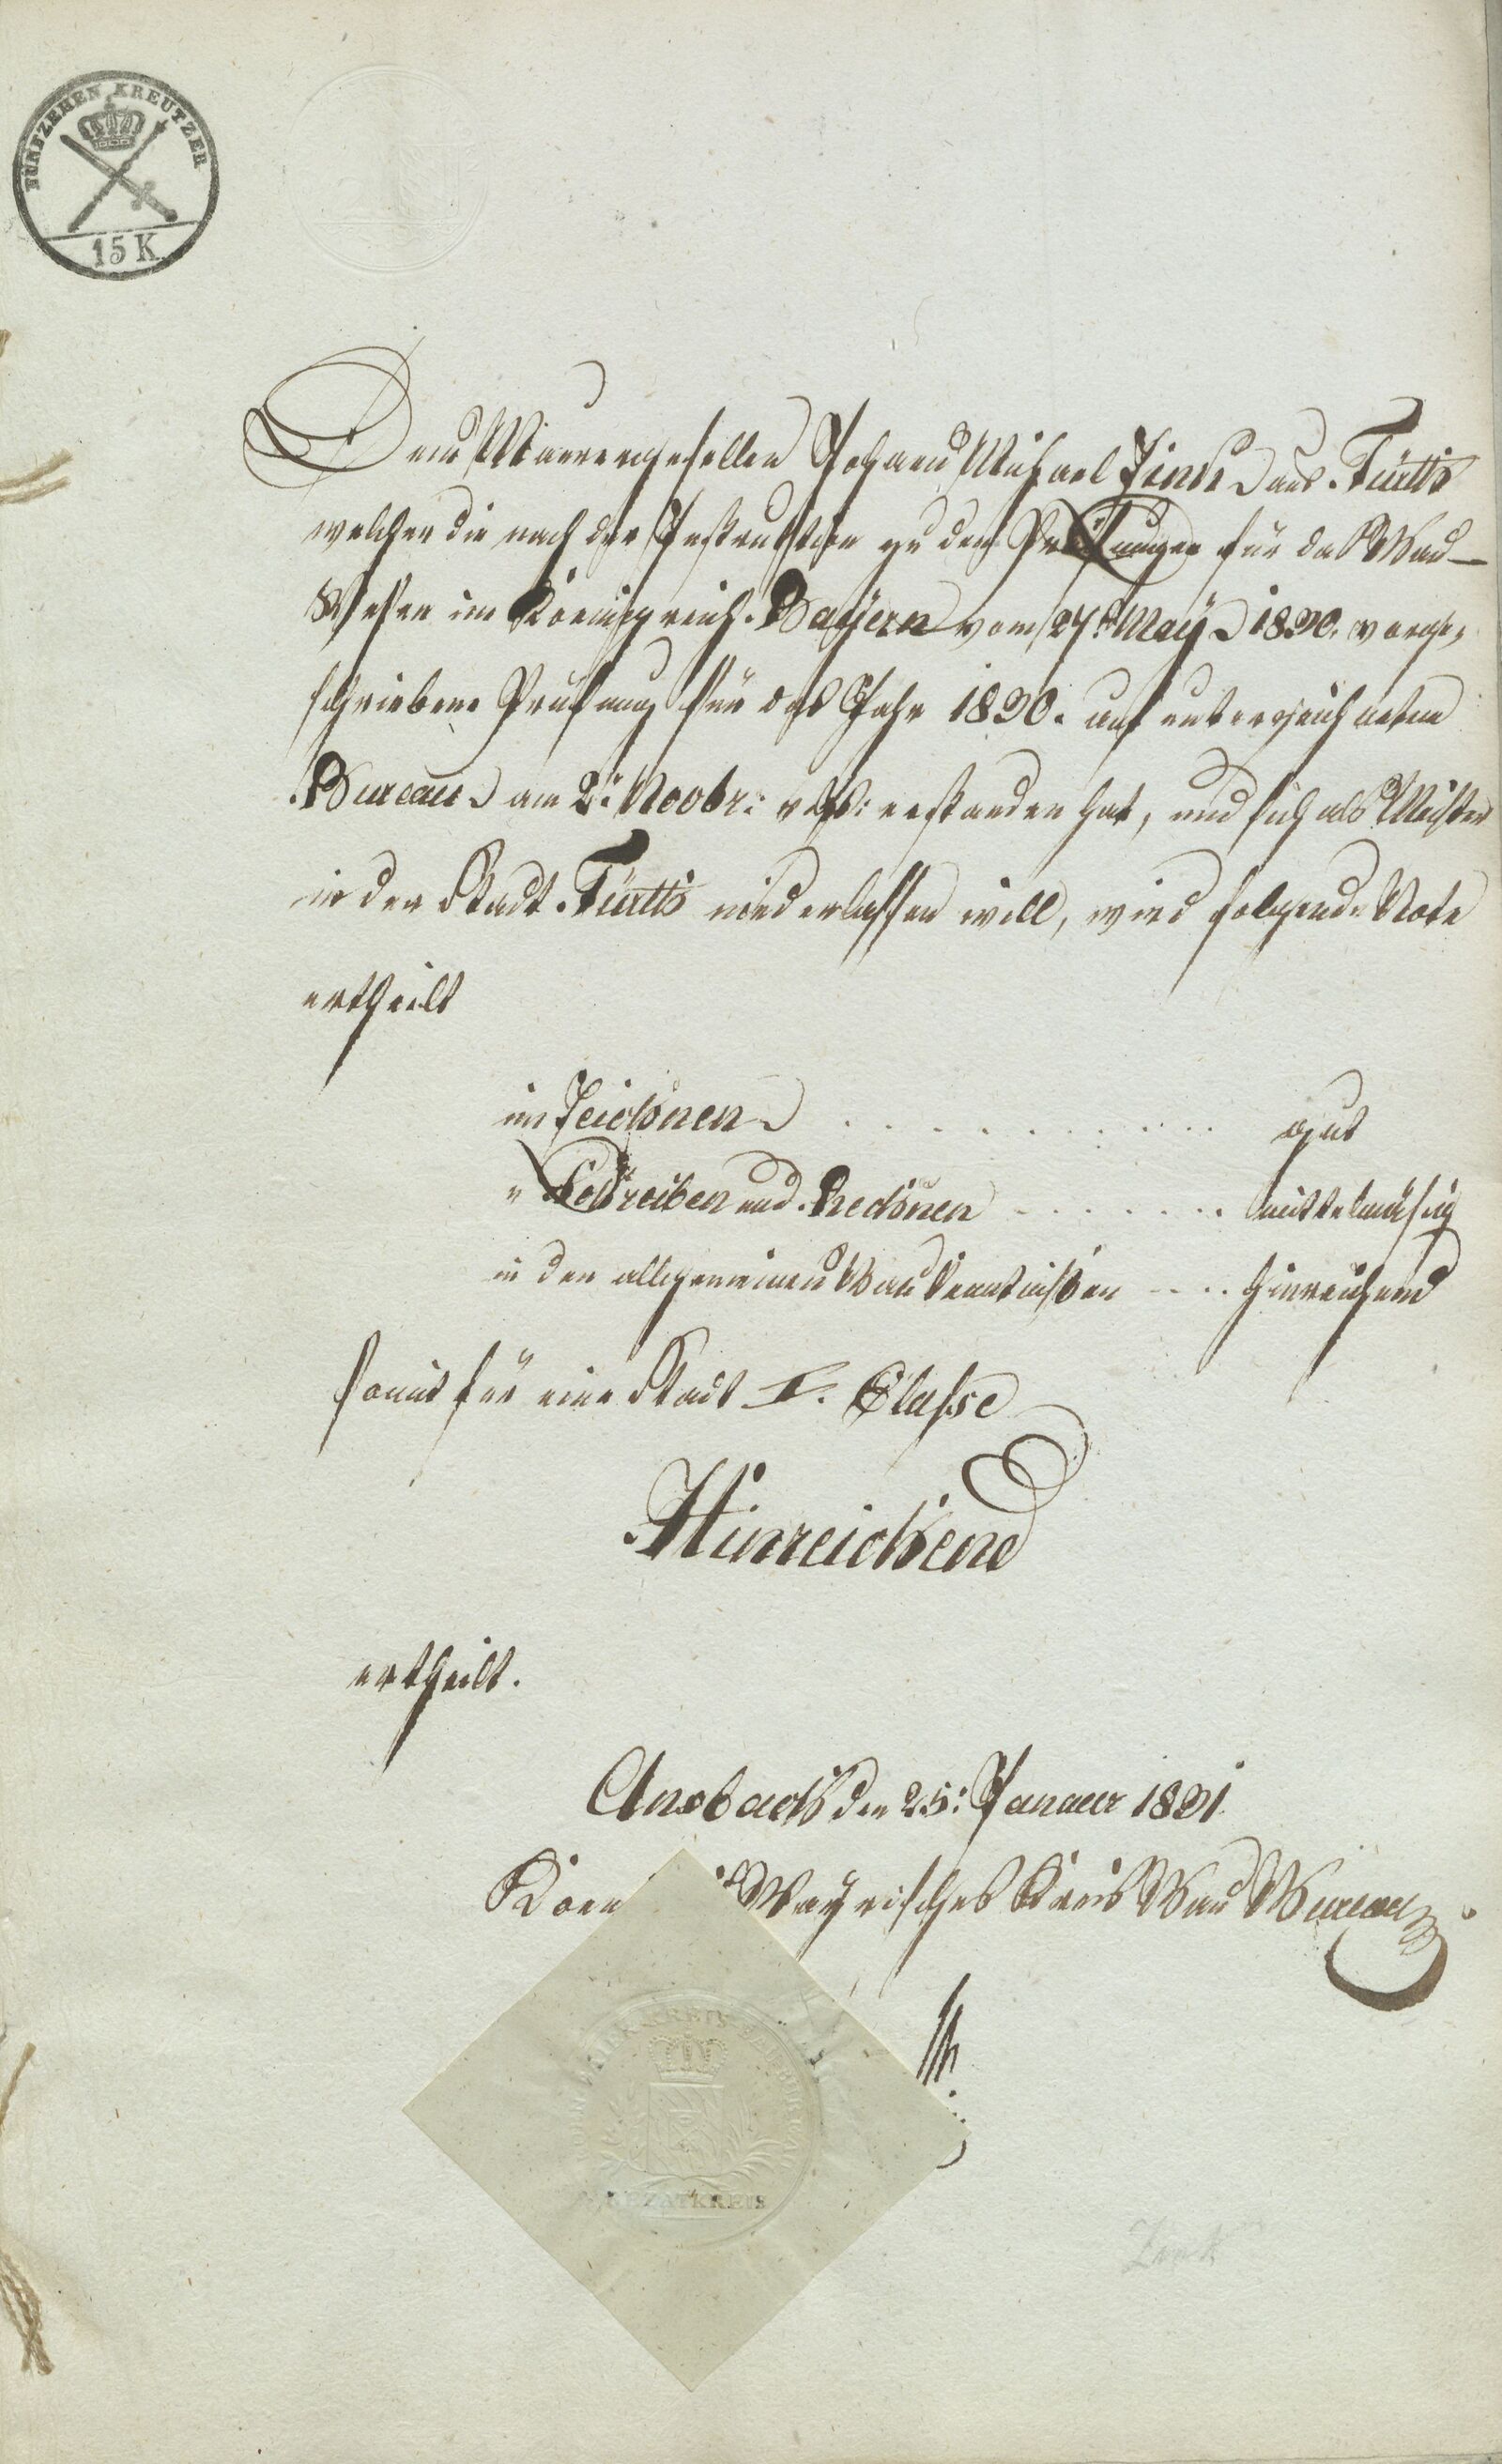 FÜNFZEHEN KREUTZER
15 K
Dem Maurergesellen Johann Michael Zink aus Fürth
welcher die nach der Instruktion zu den Prüfungen für das Bau-
Wesen im Koenigreich Bayern vom 27t. May 1830. vorge-
schriebene Prüfung für das Jahr 1830. auf unterzeichnetem
Bureau am 2t. Novbr: v. Js: erstanden hat, und sich als Meister
in der Stadt Fürth niederlassen will, wird folgende Note
ertheilt
im Zeichnen . . . . . . . . . . gut
" Schreiben und Rechnen . . . . . . . mittelmäsig
in den allgemeinen Baukenntnißen . . . . hinreichend
somit für eine Stadt I. Classe
Hinreichend
ertheilt.
Ansbach den 25t. Januar 1831
Bayrisches Kreis Bau Bureau
REZATKREIS
Zink